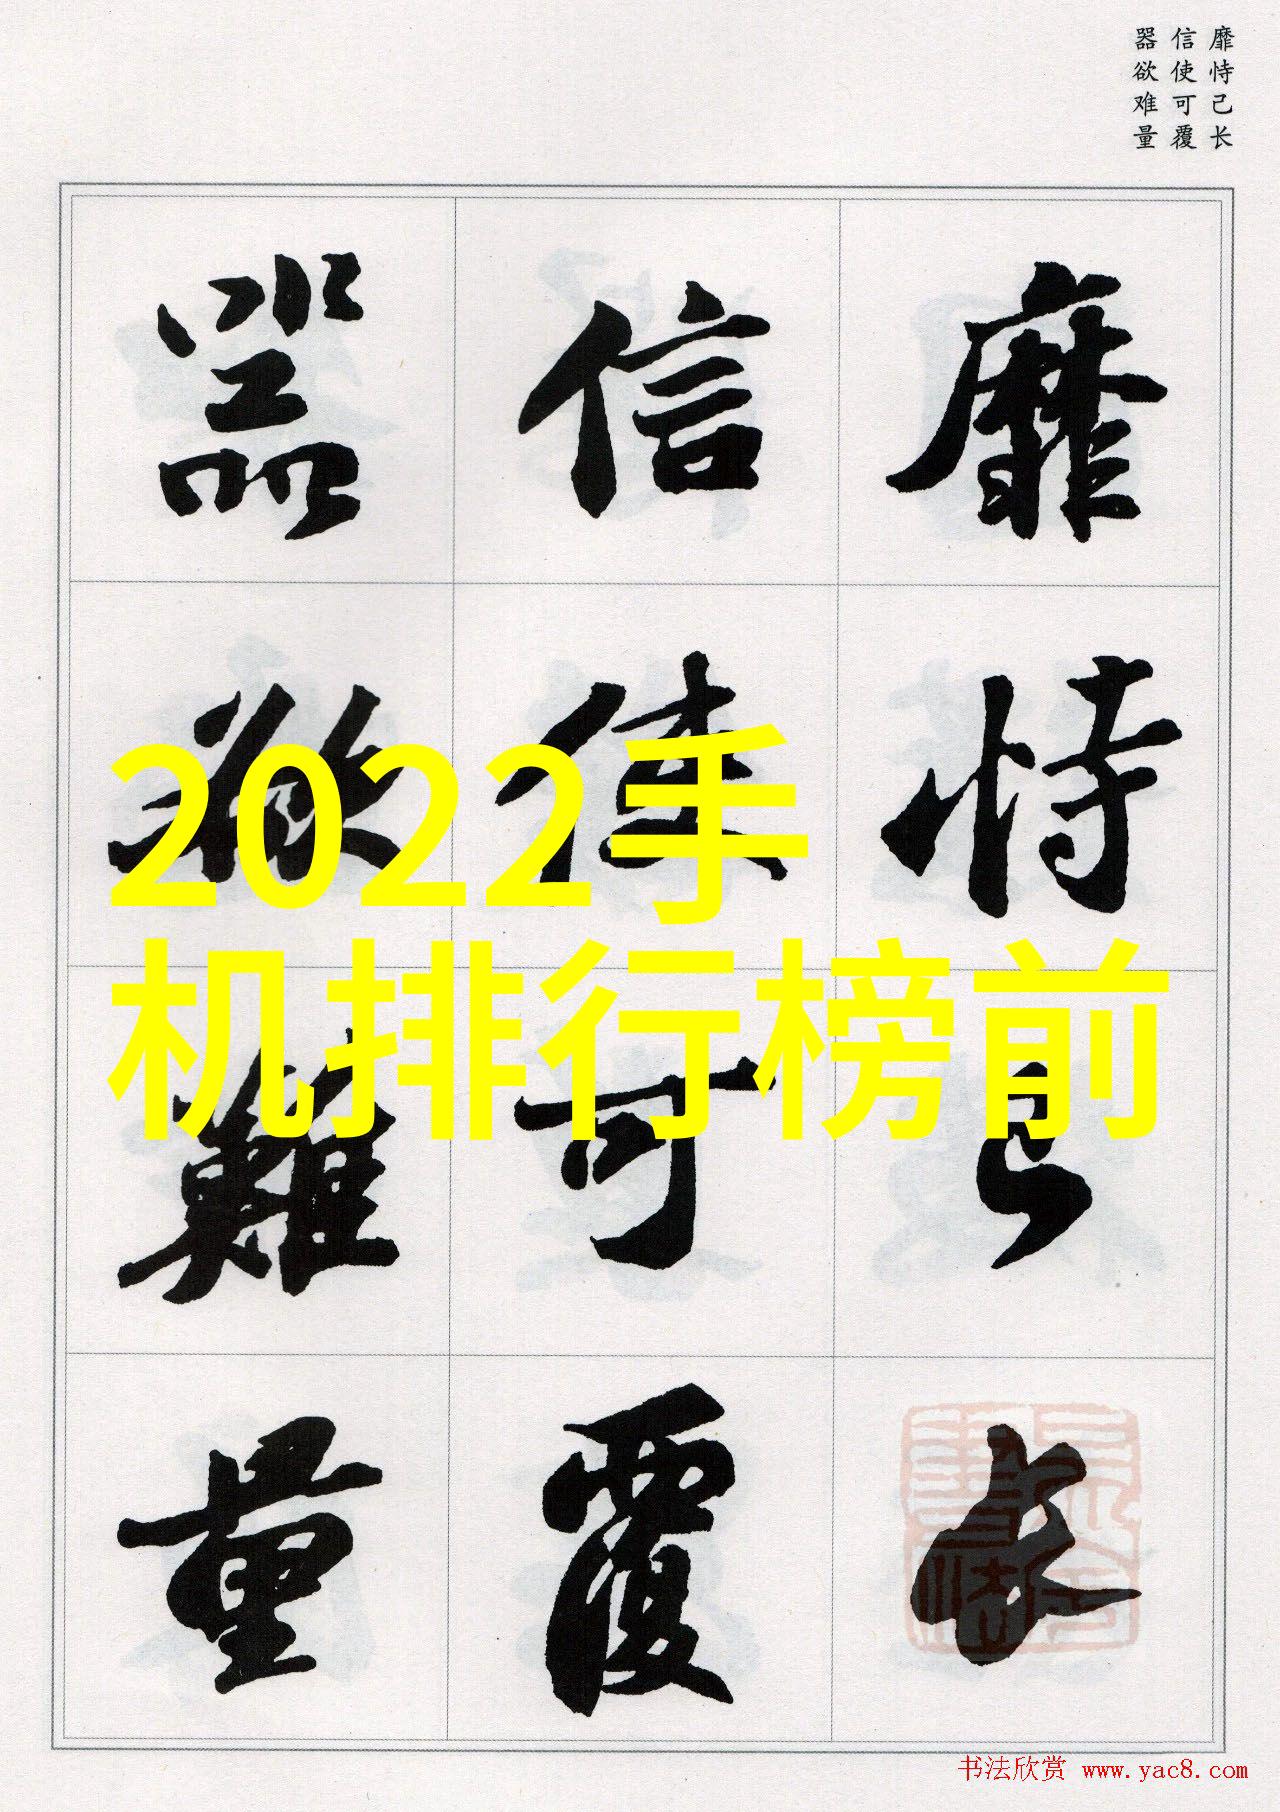 靡恃己长
信使可覆
器欲难量
靡恃己長
信使可覆
器欲難量
2022手
机排行榜前
书法欣赏 www.yac8.com